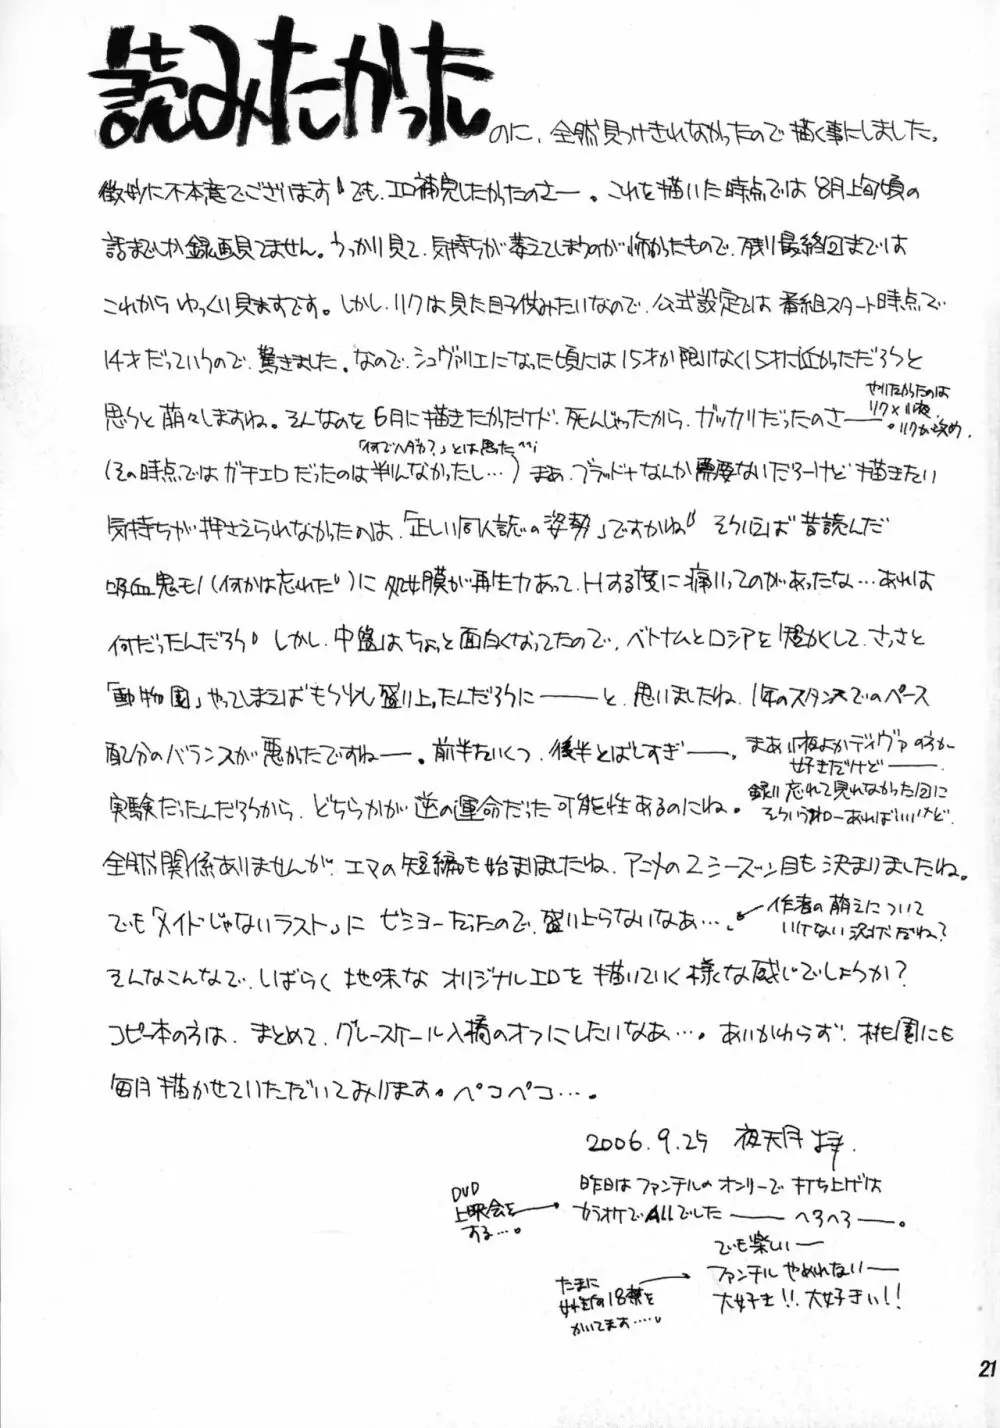 読みたかった
のに、全然見つけきれなかったので描く事にしました。
微妙に不本意でございます でも、エロ補完したかったのさー。これを描いた時点では 8月上旬頃の
話までしか録画見てません。うっかり見て、気持ちが萎えてしまうのが怖かったもので、残り最終回までは
これから ゆっくり見ますです。しかし、リクは見た目子供みたいなので、公式設定では 番組スタート時点で
14才だっていうので、驚きました。なので、シュヴァリエになった頃には 15才か限りなく15才に近かっただろうと
思うと 萌々しますね。そんなのを 6月に描きたかったけど、死んじゃったから、ガッカリだったのさー
やりたかったのは
リク×小夜
。リクが攻め。
「何でハダカ?」とは思った
(その時点ではガチエロだったのは判んなかったし…) まぁ、ブラッド+なんか 需要ないだろーけど 描きたい
気持ちが 押さえられなかったのは、「正しい同人誌の姿勢」ですかね そういえば 昔読んだ
吸血鬼モノ(何かは忘れた)に 処女膜が再生力あって、Hする度に痛いってのがあったな…あれは
何だったんだろう しかし、中盤はちょっと面白くなってたので、ベトナムとロシアを 短かくして、さっさと
「動物園」やってしまえば もう少し盛り上ったんだろうに―――と、思いましたね、1年のスタンスでのペース
配分のバランスが悪かったですねー。前半たいくつ、後半とばしすぎ――、
まあ小夜よかディヴァの方が
好きだけど―――。
実験だったんだろうから、どちらかが 逆の運命だった可能性あるのにね。
録り忘れて見れなかった回に
そういうネターあればいいけど。
全然関係ありませんが、エマの短編も始まりましたね、アニメの2シーズン目も決まりましたね。
でも「メイドじゃないラスト」に ゼミョーだったので、盛り上らないなあ…。
作者の萌えについて
いけない状だね?
そんなこんなで、しばらく 地味な オリジナルエロを 描いていく様な感じでしょうか?
コピー本の方は、まとめて、グレースケール入稿のオフにしたいなあ…。あいかわらず、桃園にも
毎月描かせていただいております。ペコペコ…。
2006.9.25 夜天月 拝。
昨日は ファンテルの オンリーで 打ち上げは
カラオケで Allでした―― へろへろ――。
DVD
上映会を
する…。
でも楽しい―
ファンテル やめれない―
大好き!! 大好きぃ!!
たまに
18禁を
かいてます……。
21